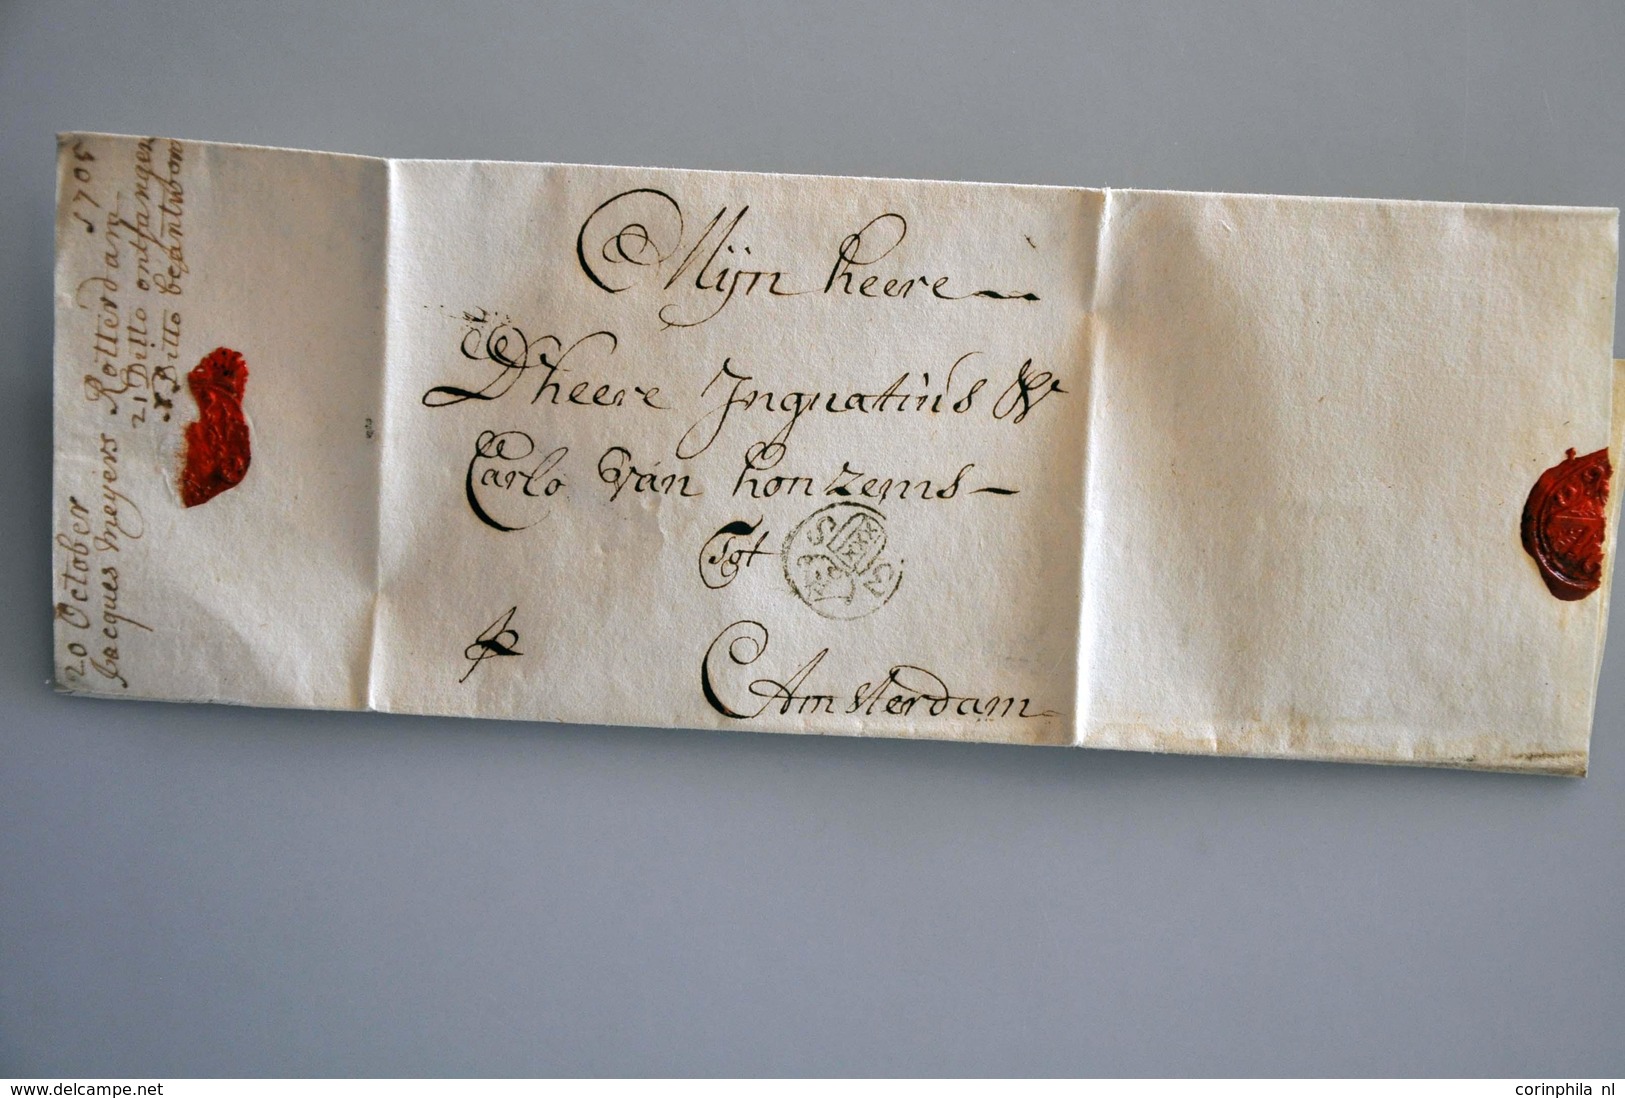 20 October 1705
Jacques Meyers Rotterdam
21 Ditto ontfangen
Ditto beantwoort
Mijn heere
Dheere Jngnatius &
Carlo Van honzems
Tot
Amsterdam
www.delcampe.net
corinphila nl